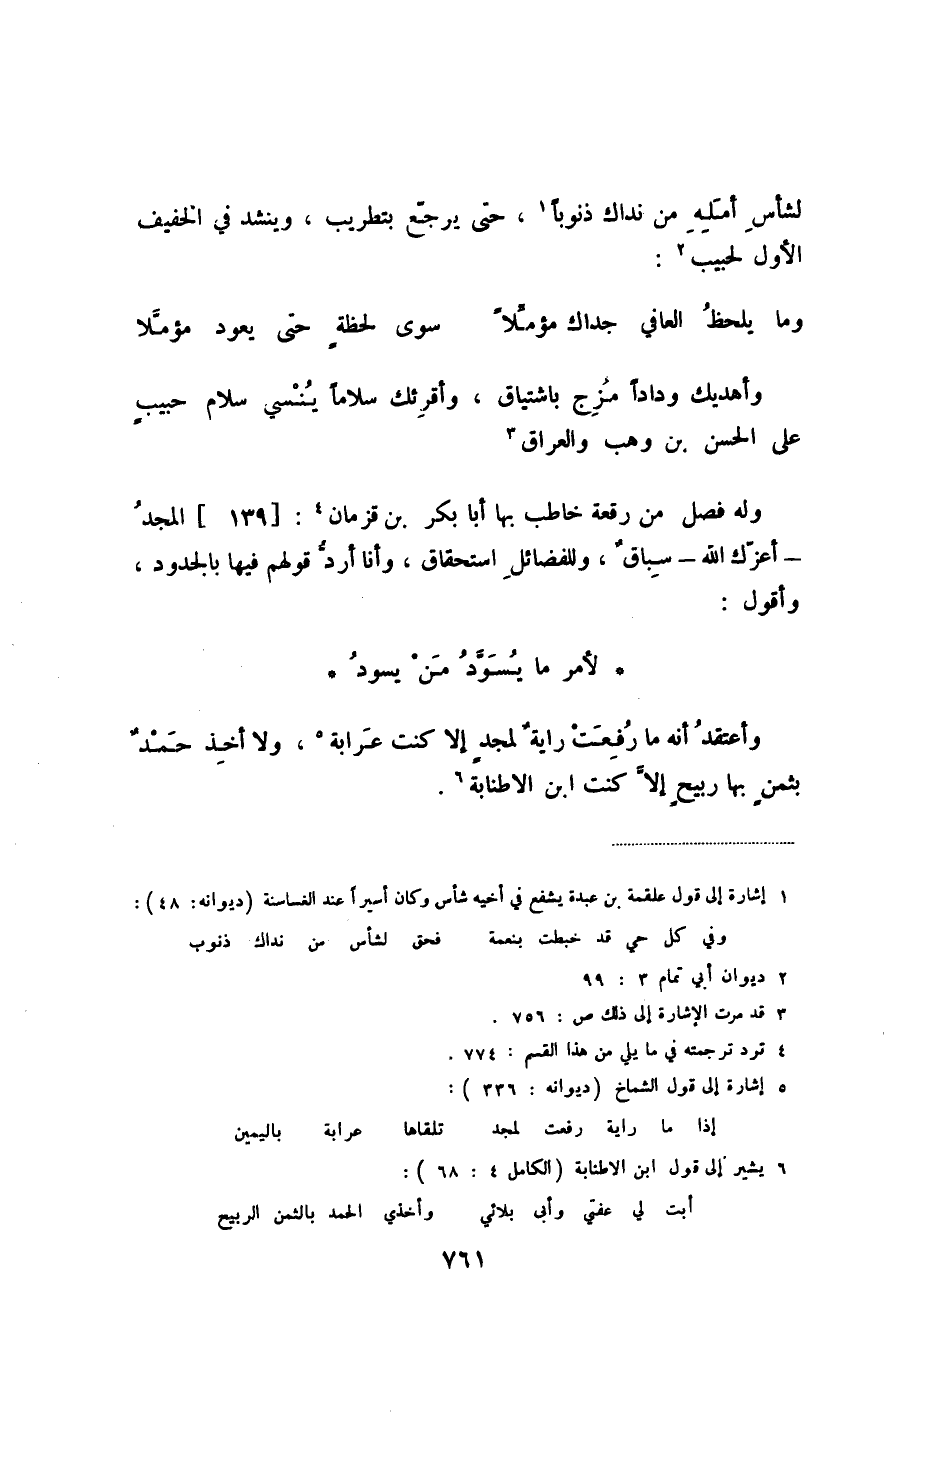 لشأسِ أمَلِهِ من نداك ذنوباً١ ، حتى يرجّع بتطريب ، وينشد في الخفيف
الأول لحبيب٢ :
وما يلحظُ العافي جداك مؤمّلاً سوى لحظةٍ حتى يعود مؤمَّلا
وأهديك وداداً مُزِج باشتياق ، وأقرئك سلاماً يُنْسي سلام حبيبٍ
على الحسن بن وهب والعراق٣
وله فصل من رقعة خاطب بها أبا بكر بن قزمان٤ : [ ١٣٩ ] المجدُ
– أعزّك الله – سباقٌ ، وللفضائلِ استحقاق ، وأنا أردُّ قولهم فيها بالجدود ،
وأقول :
* لأمر ما يُسَوَّدُ مَنْ يسودُ *
وأعتقدُ أنه ما رُفِعَتْ رايةٌ لمجدٍ إلا كنت عَرابة٥ ، ولا أخِذ حَمْدٌ
بثمنٍ بها ربيحٍ إلاَّ كنت ابن الاطنابة٦ .
١ إشارة إلى قول علقمة بن عبدة يشفع في أخيه شأس وكان أسيراً عند الغساسنة (ديوانه: ٤٨) :
وفي كل حي قد خبطت بنعمة فحق لشأس من نداك ذنوب
٢ ديوان أبي تمام ٣ : ٩٩
٣ قد مرت الإشارة إلى ذلك ص : ٧٥٦ .
٤ ترد ترجمته في ما يلي من هذا القسم : ٧٧٤ .
٥ إشارة إلى قول الشماخ (ديوانه : ٣٣٦ ) :
إذا ما راية رفعت لمجد تلقاها عرابة باليمين
٦ يشير إلى قول ابن الاطنابة (الكامل ٤ : ٦٨ ) :
أبت لي عفتي وأبى بلائي وأخذي الحمد بالثمن الربيح
٧٦١